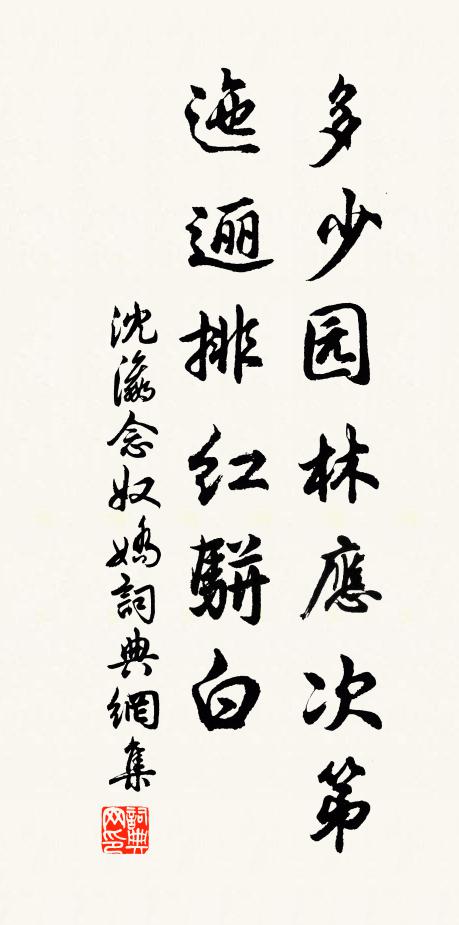 多少园林應次第
迤逦排红騈白
沈瀛念奴嬌詞典網集
詞典网印